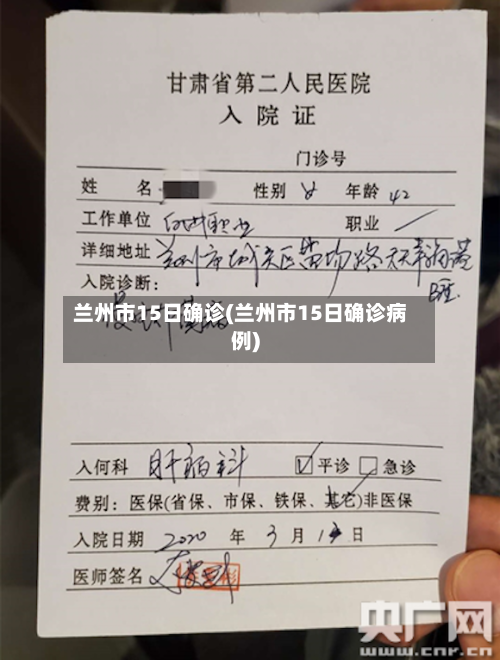 甘肃省第二人民医院
入院证
门诊号
姓 名 性别 女 年龄 42
工作单位 职业
详细地址 兰州市城关区苗圃路天
入院诊断:
兰州市15日确诊(兰州市15日确诊病
例)
入何科 肝病科 ☑平诊 □急诊
费别:医保(省保、市保、铁保、其它)非医保
入院日期 2020 年 3 月 日
医师签名
央广网
www.cnr.cn